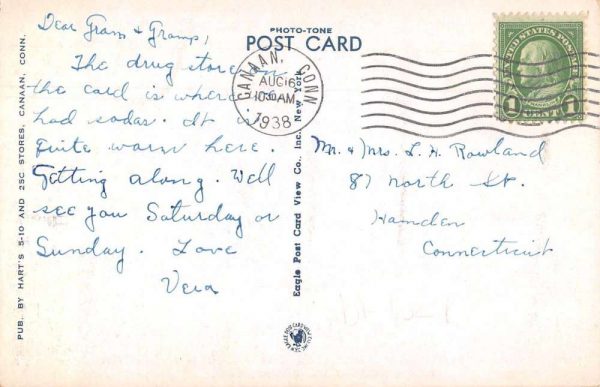 Dear Gram & Gramp,
The drug store on
the card is where we
had sodas. It is
quite warm here.
Getting along. Will
see you Saturday or
Sunday. Love
Vera
PUB. BY HART'S 5-10 AND 25C STORES, CANAAN, CONN.
PHOTO-TONE
POST CARD
Eagle Post Card View Co., Inc. New York
CANAAN, CONN
AUG 16
10 30 AM
1938
UNITED STATES POSTAGE
1 CENT 1
Mr. & Mrs. L. H. Rowland
87 North St.
Hamden
Connecticut